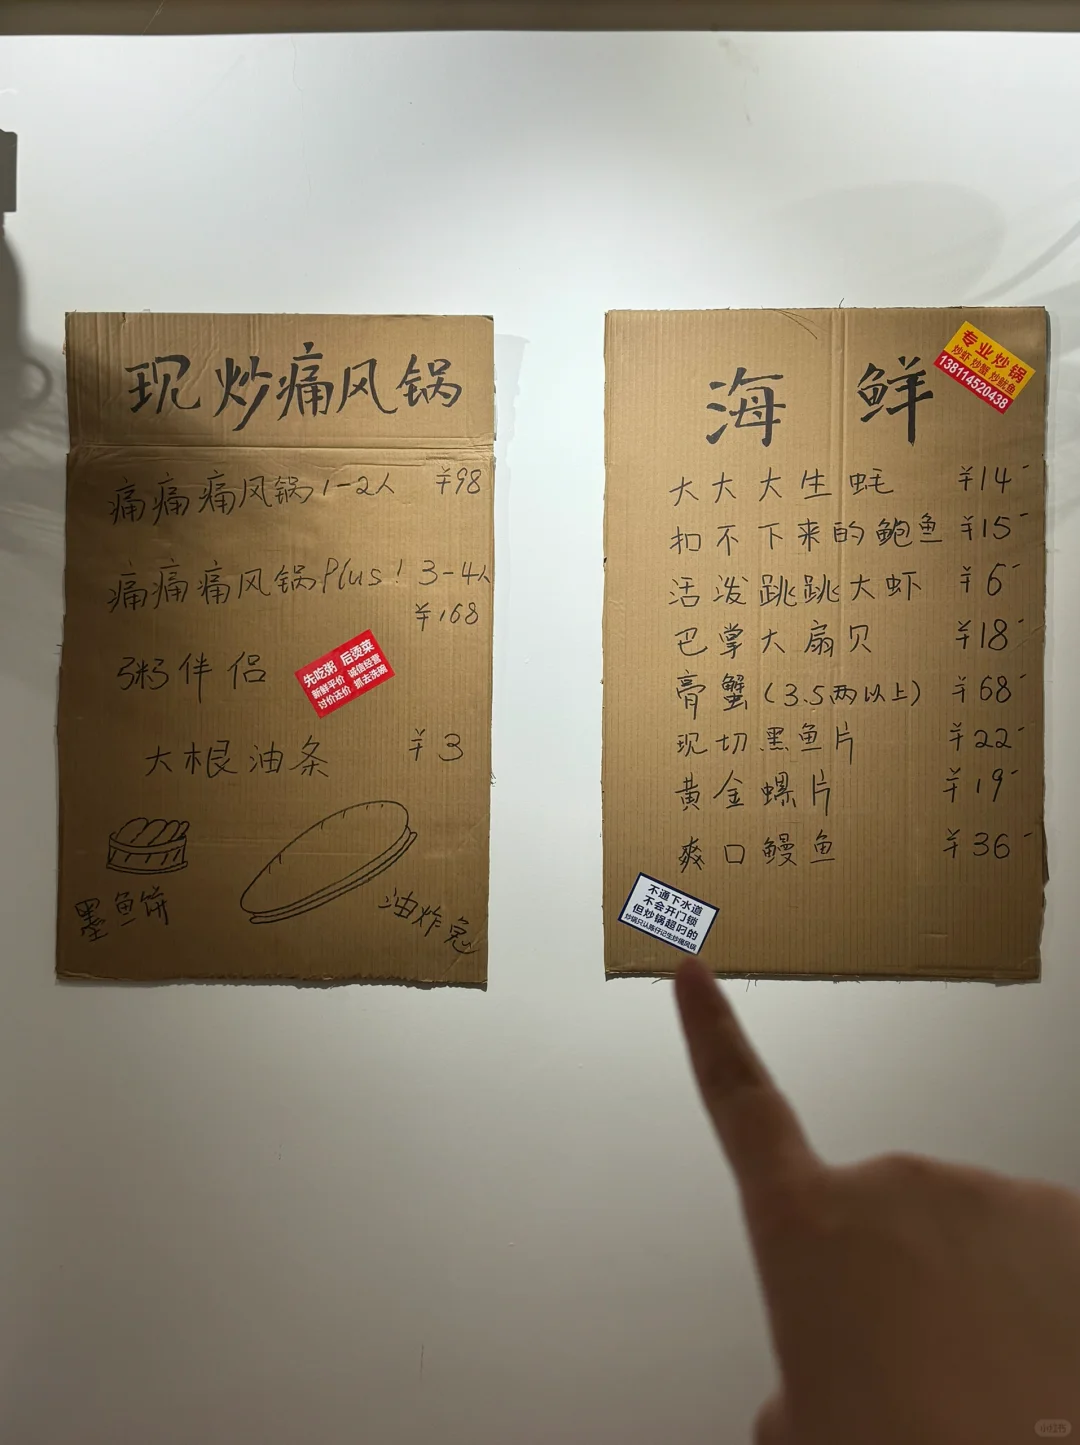 现炒痛风锅
痛痛痛风锅1-2人 ¥98
痛痛痛风锅Plus! 3-4人
¥168
粥伴侣
先吃粥 后烫菜
新鲜平价 诚信经营
讨价还价 抓去洗碗
大根油条 ¥3
墨鱼饼
油炸鬼
海鲜
专业炒锅
炒虾 炒蟹 炒鱿鱼
138114520438
大大大生蚝 ¥14-
扣不下来的鲍鱼 ¥15-
活泼跳跳大虾 ¥6-
巴掌大扇贝 ¥18-
膏蟹(3.5两以上) ¥68-
现切黑鱼片 ¥22-
黄金螺片 ¥19-
爽口鳗鱼 ¥36-
不通下水道
不会开门锁
但炒锅超叼的
炒锅只认陈仔记生炒痛风锅
小红书